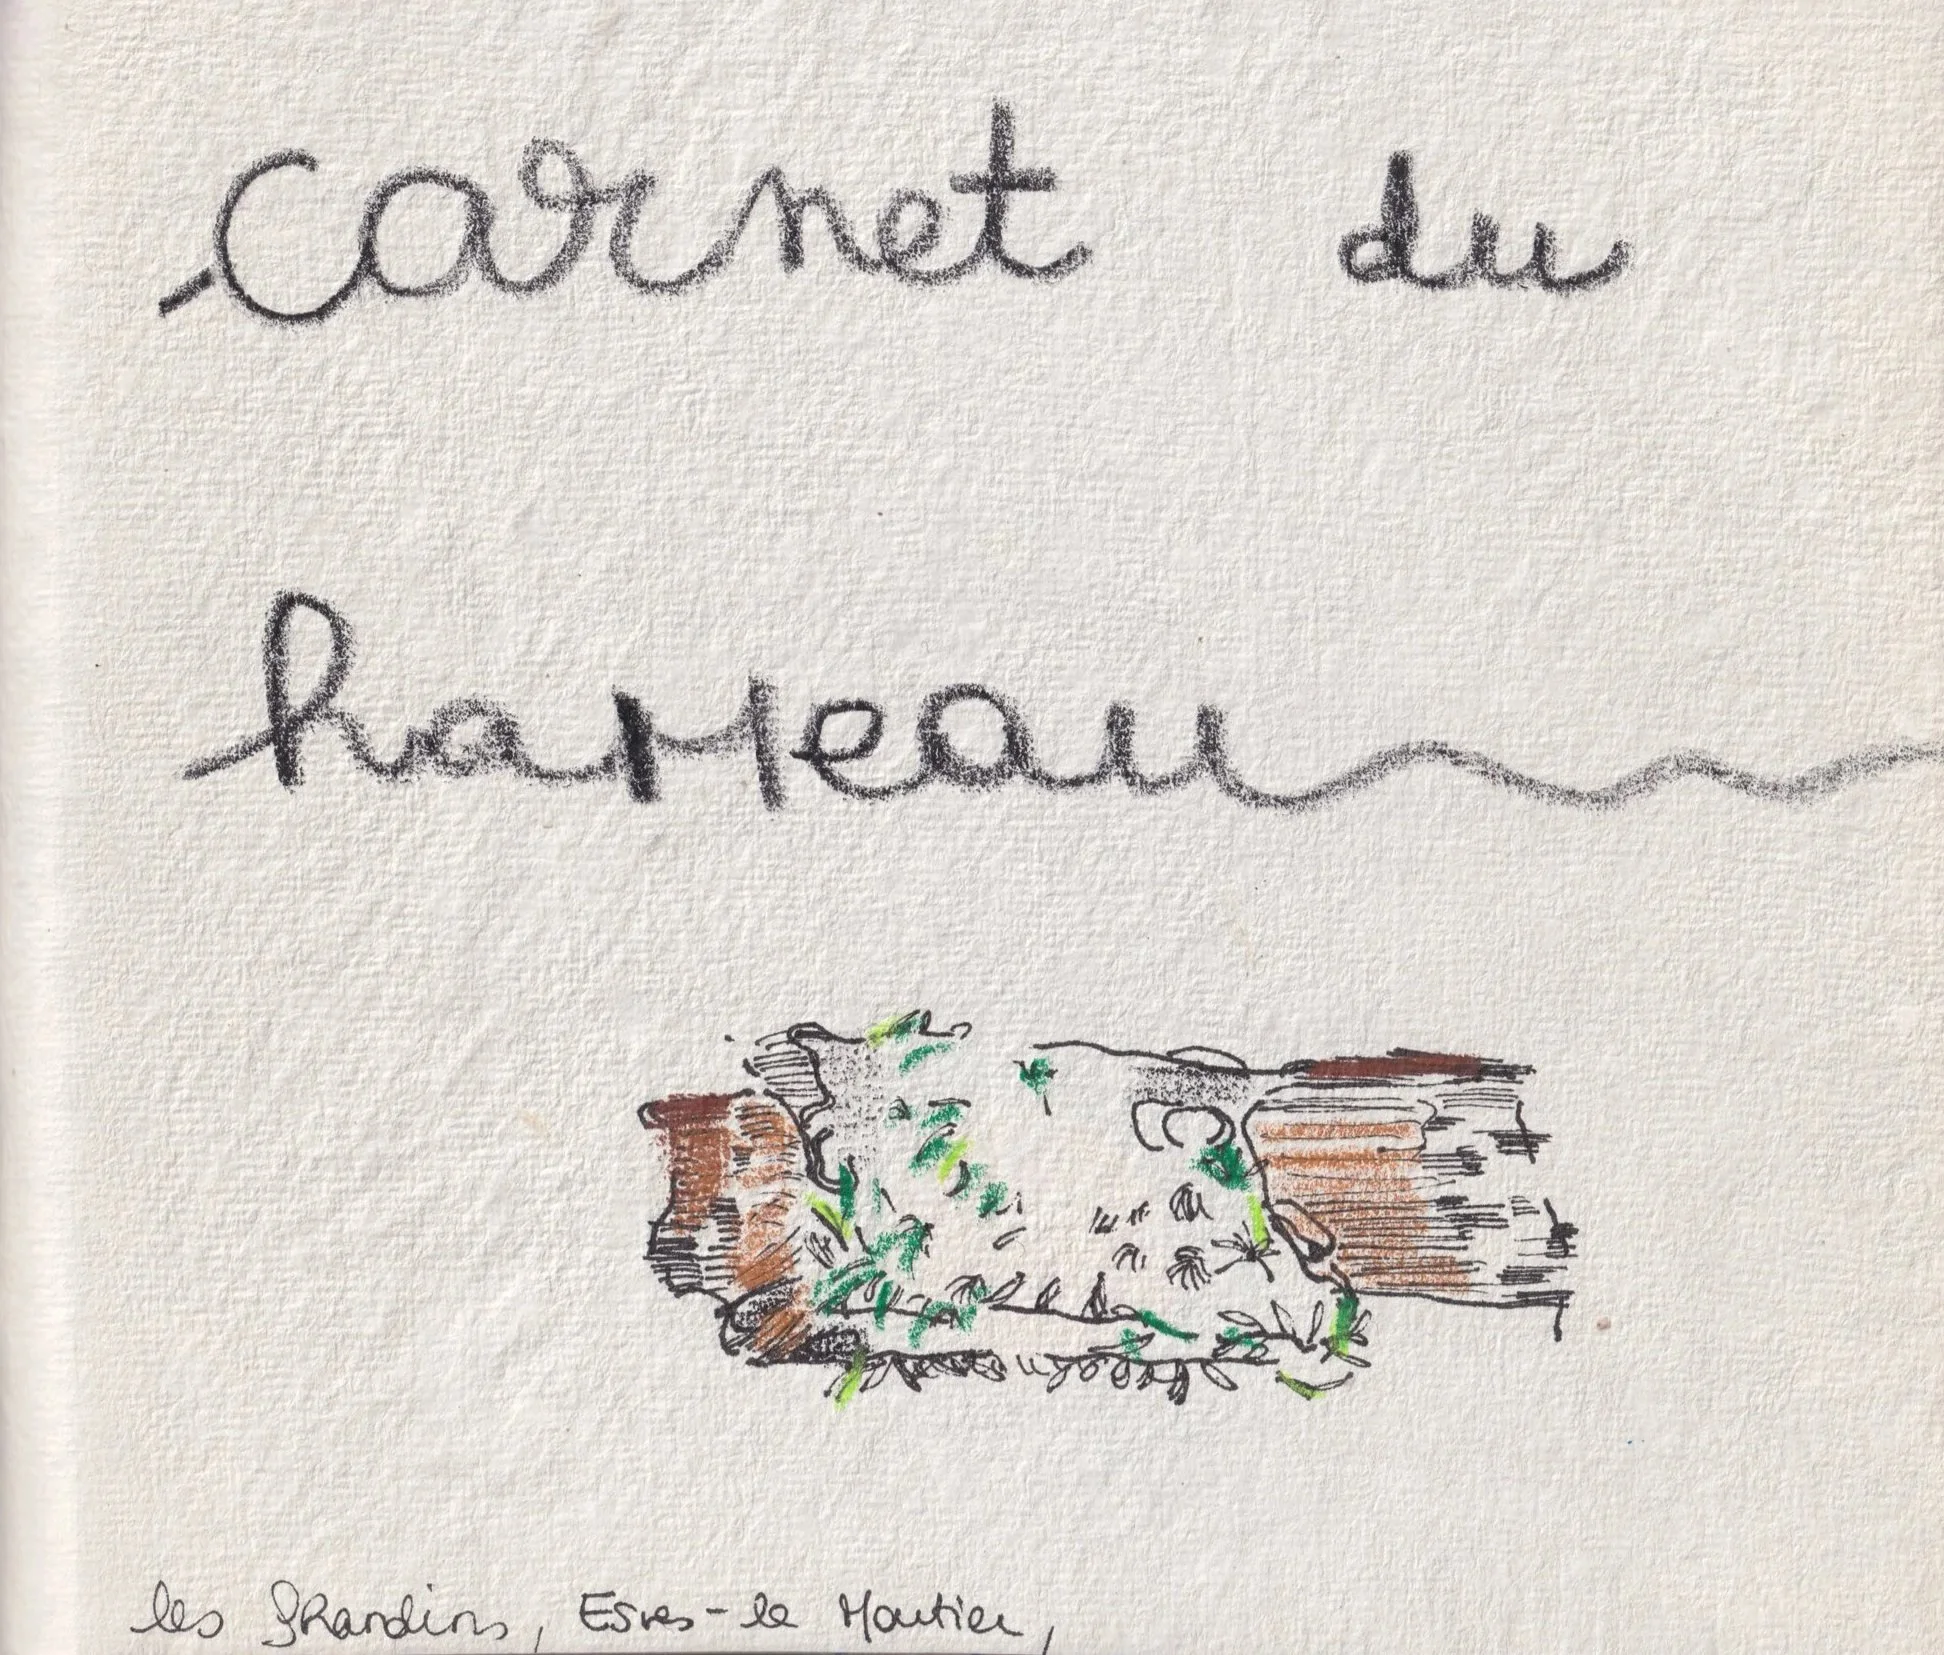 carnet du
haMeau
les Grandins, Esves-le Moutier,